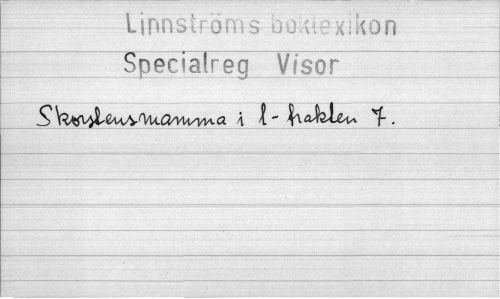 Linnströms boklexikon
Specialreg Visor
Skorstensmamma i l-trakten 7.